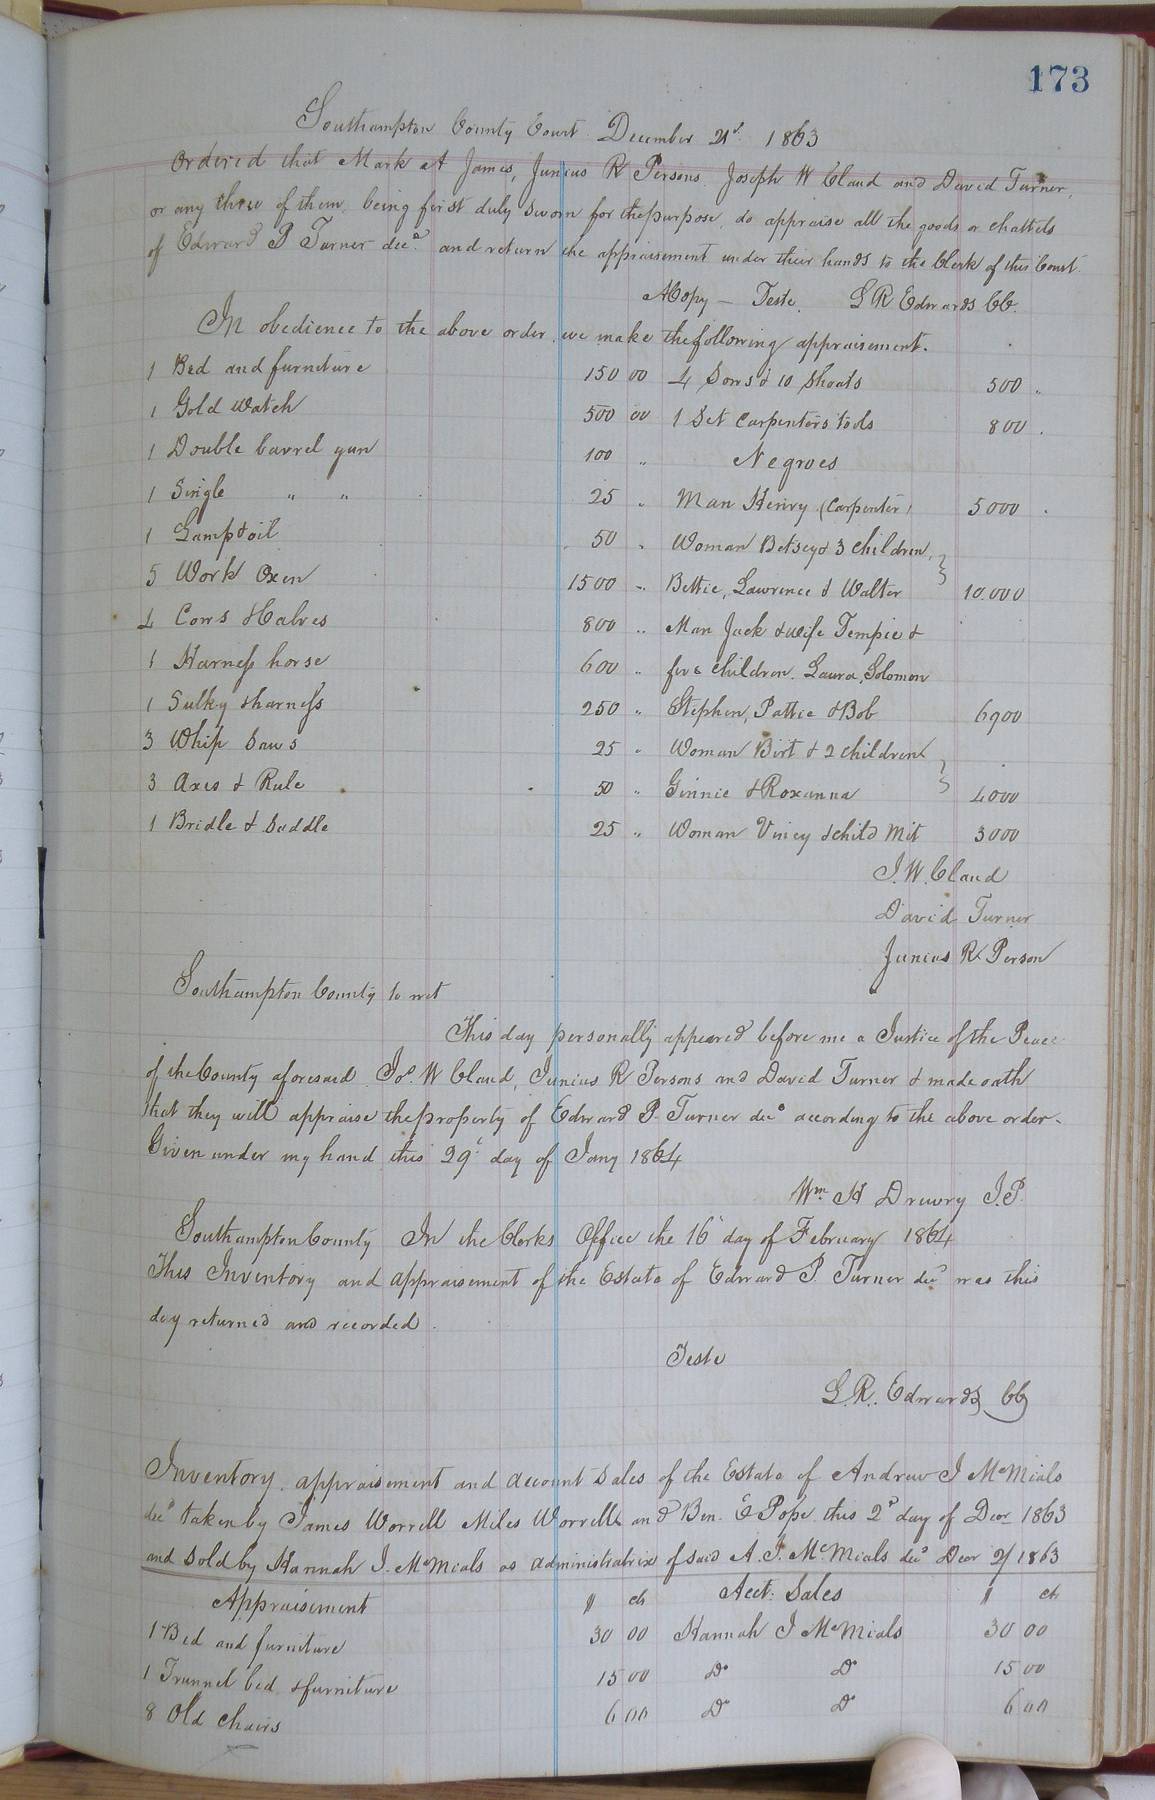 173
Southampton County Court December 21st 1863
Ordered that Mark A James, Junius R Persons Joseph W Claud and David Turner,
or any three of them, being first duly sworn for the purpose, do appraise all the goods or chattels
of Edward P Turner decd and return the appraisement under their hands to the Clerk of this Court.
A Copy — Teste. L R Edwards CC.
In obedience to the above order, we make the following appraisement.
1 Bed and furniture 150 00 4 Sows & 10 Shoats 500 "
1 Gold Watch 500 00 1 Set Carpenters tools 800 .
1 Double barrel gun 100 " Negroes
1 Single " " 25 " Man Henry (Carpenter) 5000 .
1 Lamp & oil 50 " Woman Betsey & 3 children,
5 Work Oxen 1500 " Bettie, Lawrence & Walter 10.000
4 Cows & Calves 800 " Man Jack & wife Tempie &
1 Harness horse 600 " five children. Laura, Solomon
1 Sulky & harness 250 " Stephen, Pattie & Bob 6900
3 Whip Saws 25 " Woman Birt & 2 children
3 Axes & Rule 50 " Ginnie & Roxanna 4000
1 Bridle & Saddle 25 " Woman Viney & child Mit 3000
J. W. Claud
David Turner
Junius R Person
Southampton County to wit
This day personally appeared before me a Justice of the Peace
of the County aforesaid Jos. W Claud, Junius R Persons and David Turner & made oath
that they will appraise the property of Edward P. Turner decd according to the above order.
Given under my hand this 29th day of Jany 1864
Wm H Drewry J.P.
Southampton County In the Clerks Office the 16th day of February 1864
This Inventory and appraisement of the Estate of Edward P. Turner decd was this
day returned and recorded.
Teste
L. R. Edwards CC
Inventory, appraisement and account Sales of the Estate of Andrew J McMials
decd taken by James Worrell Miles Worrell and Ben. E Pope this 2d day of Decr 1863
and Sold by Hannah J. McMials as administratrix of said A. J. McMials decd Decr 2/ 1863
Appraisement $ cts Acct. Sales $ cts
1 Bed and furniture 30 00 Hannah J McMials 30 00
1 Trunnel bed & furniture 15 00 Do Do 15 00
8 Old Chairs 6 00 Do Do 6 00